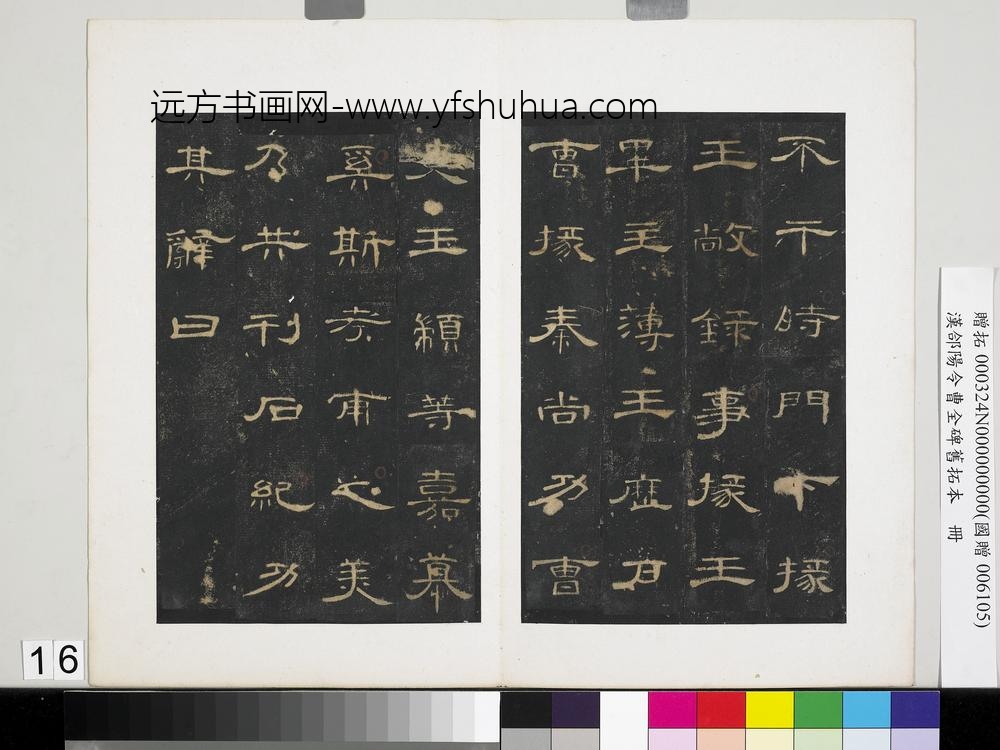 远方书画网-www.yfshuhua.com
不干時門下掾
王敞錄事掾王
畢主薄王歷戶
曹掾秦尚功曹
史王顓等嘉慕
奚斯考甫之美
乃共刊石紀功
其辭曰
贈拓 000324N000000000(國贈 006105)
漢郃陽令曹全碑舊拓本 冊
16